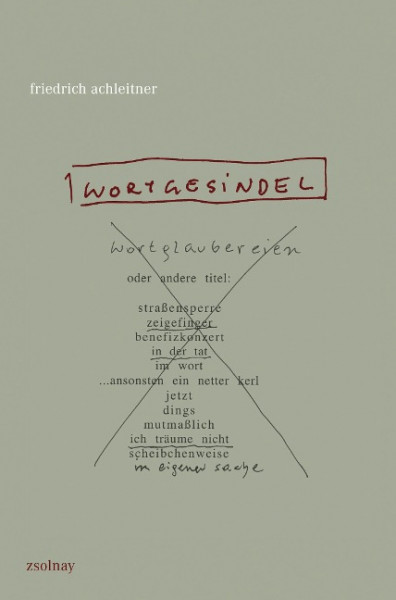 friedrich achleitner
WORTGESINDEL
wortglaubereien
oder andere titel:
straßensperre
zeigefinger
benefizkonzert
in der tat
im wort
...ansonsten ein netter kerl
jetzt
dings
mutmaßlich
ich träume nicht
scheibchenweise
in eigener sache
zsolnay